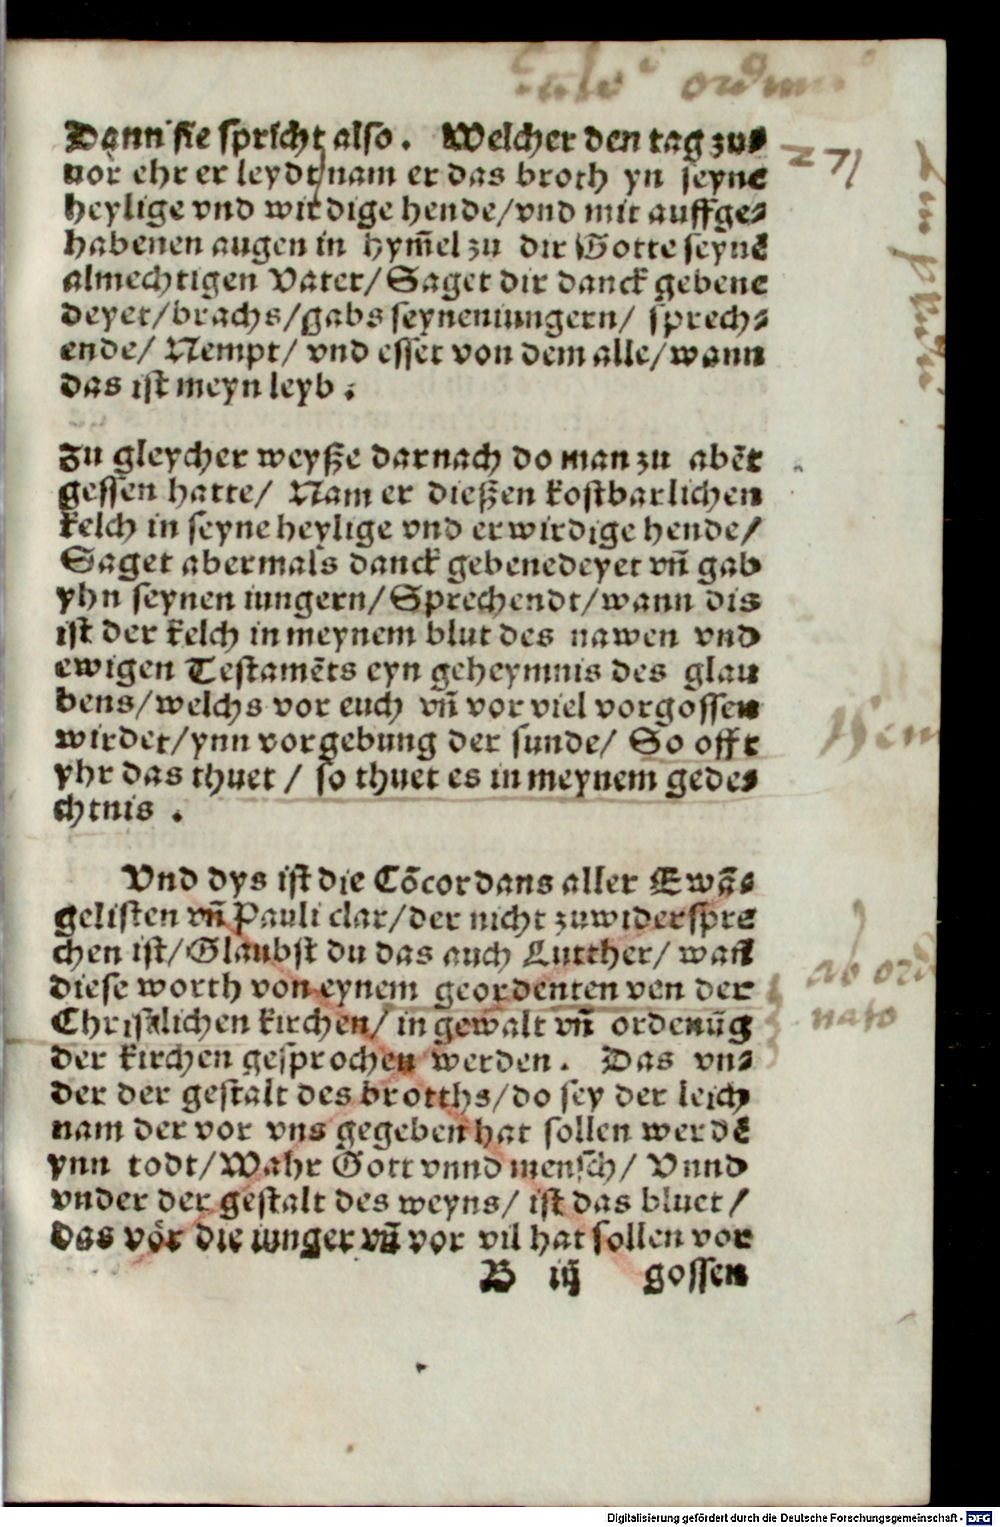 Dann sie spricht also. Welcher den tag zu⸗
uor ehr er leydt/nam er das broth yn seyne
heylige vnd wirdige hende/vnd mit auffge⸗
habenen augen in hym̃el zu dir Gotte seynẽ
almechtigen Vater/Saget dir danck gebene
deyet/brachs/gabs seyneniungern/ sprech⸗
ende/ Nempt/ vnd esset von dem alle/wann
das ist meyn leyb.
Zu gleycher weyße darnach do man zu abẽt
gessen hatte/ Nam er dießen kostbarlichen
kelch in seyne heylige vnd erwirdige hende/
Saget abermals danck gebenedeyet vñ gab
yhn seynen iungern/Sprechendt/wann dis
ist der kelch in meynem blut des nawen vnd
ewigen Testamẽts eyn geheymnis des glau
bens/welchs vor euch vñ vor viel vorgossen
wirdet/ynn vorgebung der sunde/ So offt
yhr das thuet / so thuet es in meynem gede⸗
chtnis .
Vnd dys ist die Cõcordans aller Ewã⸗
gelisten vñ Pauli clar/der nicht zuwiderspre
chen ist/Glaubst du das auch Lutther/ wañ
diese worth von eynem geordenten von der
Christlichen kirchen/ in gewalt vñ ordenũg
der kirchen gesprochen werden. Das vn⸗
der der gestalt des brotths/do sey der leich
nam der vor vns gegeben hat sollen werdẽ
ynn todt/Wahr Gott vnnd mensch/ Vnnd
vnder der gestalt des weyns/ ist das bluet/
das vor die iunger vñ vor vil hat sollen vor
B iij gossen
271
Item
ab ord
nato
Digitalisierung gefördert durch die Deutsche Forschungsgemeinschaft - DFG